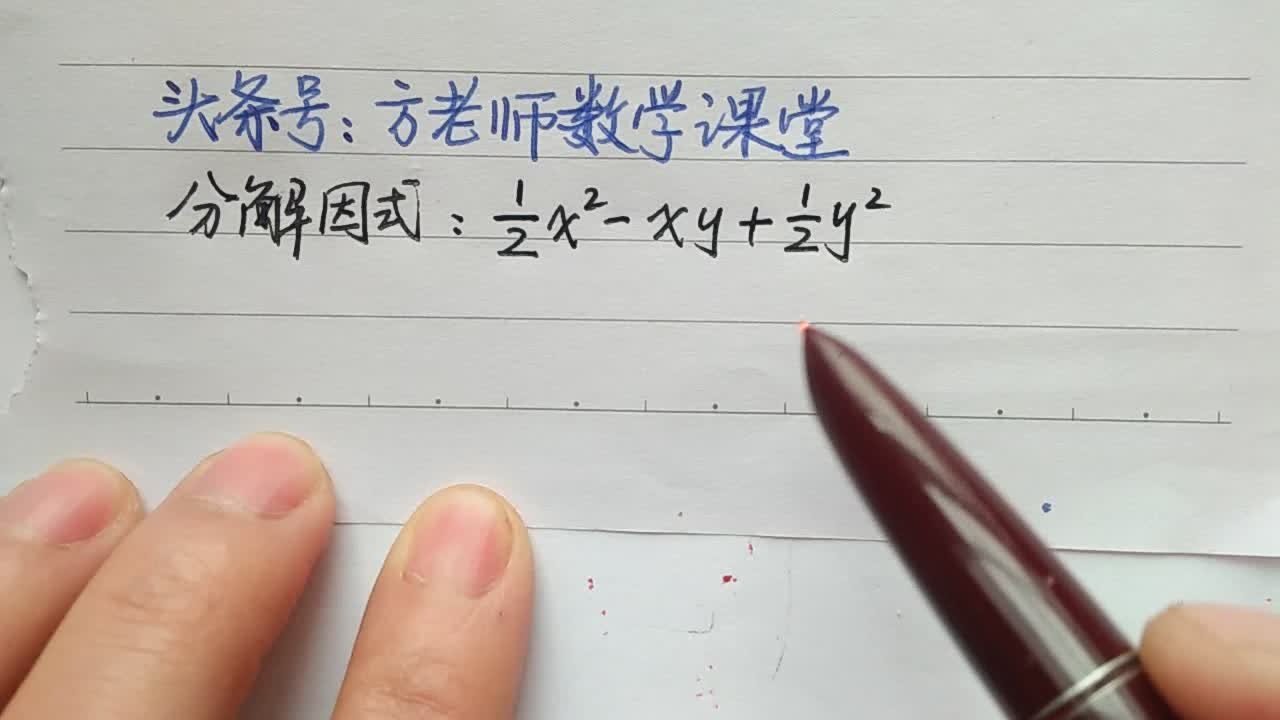 头条号：方老师数学课堂
分解因式：½x²-xy+½y²